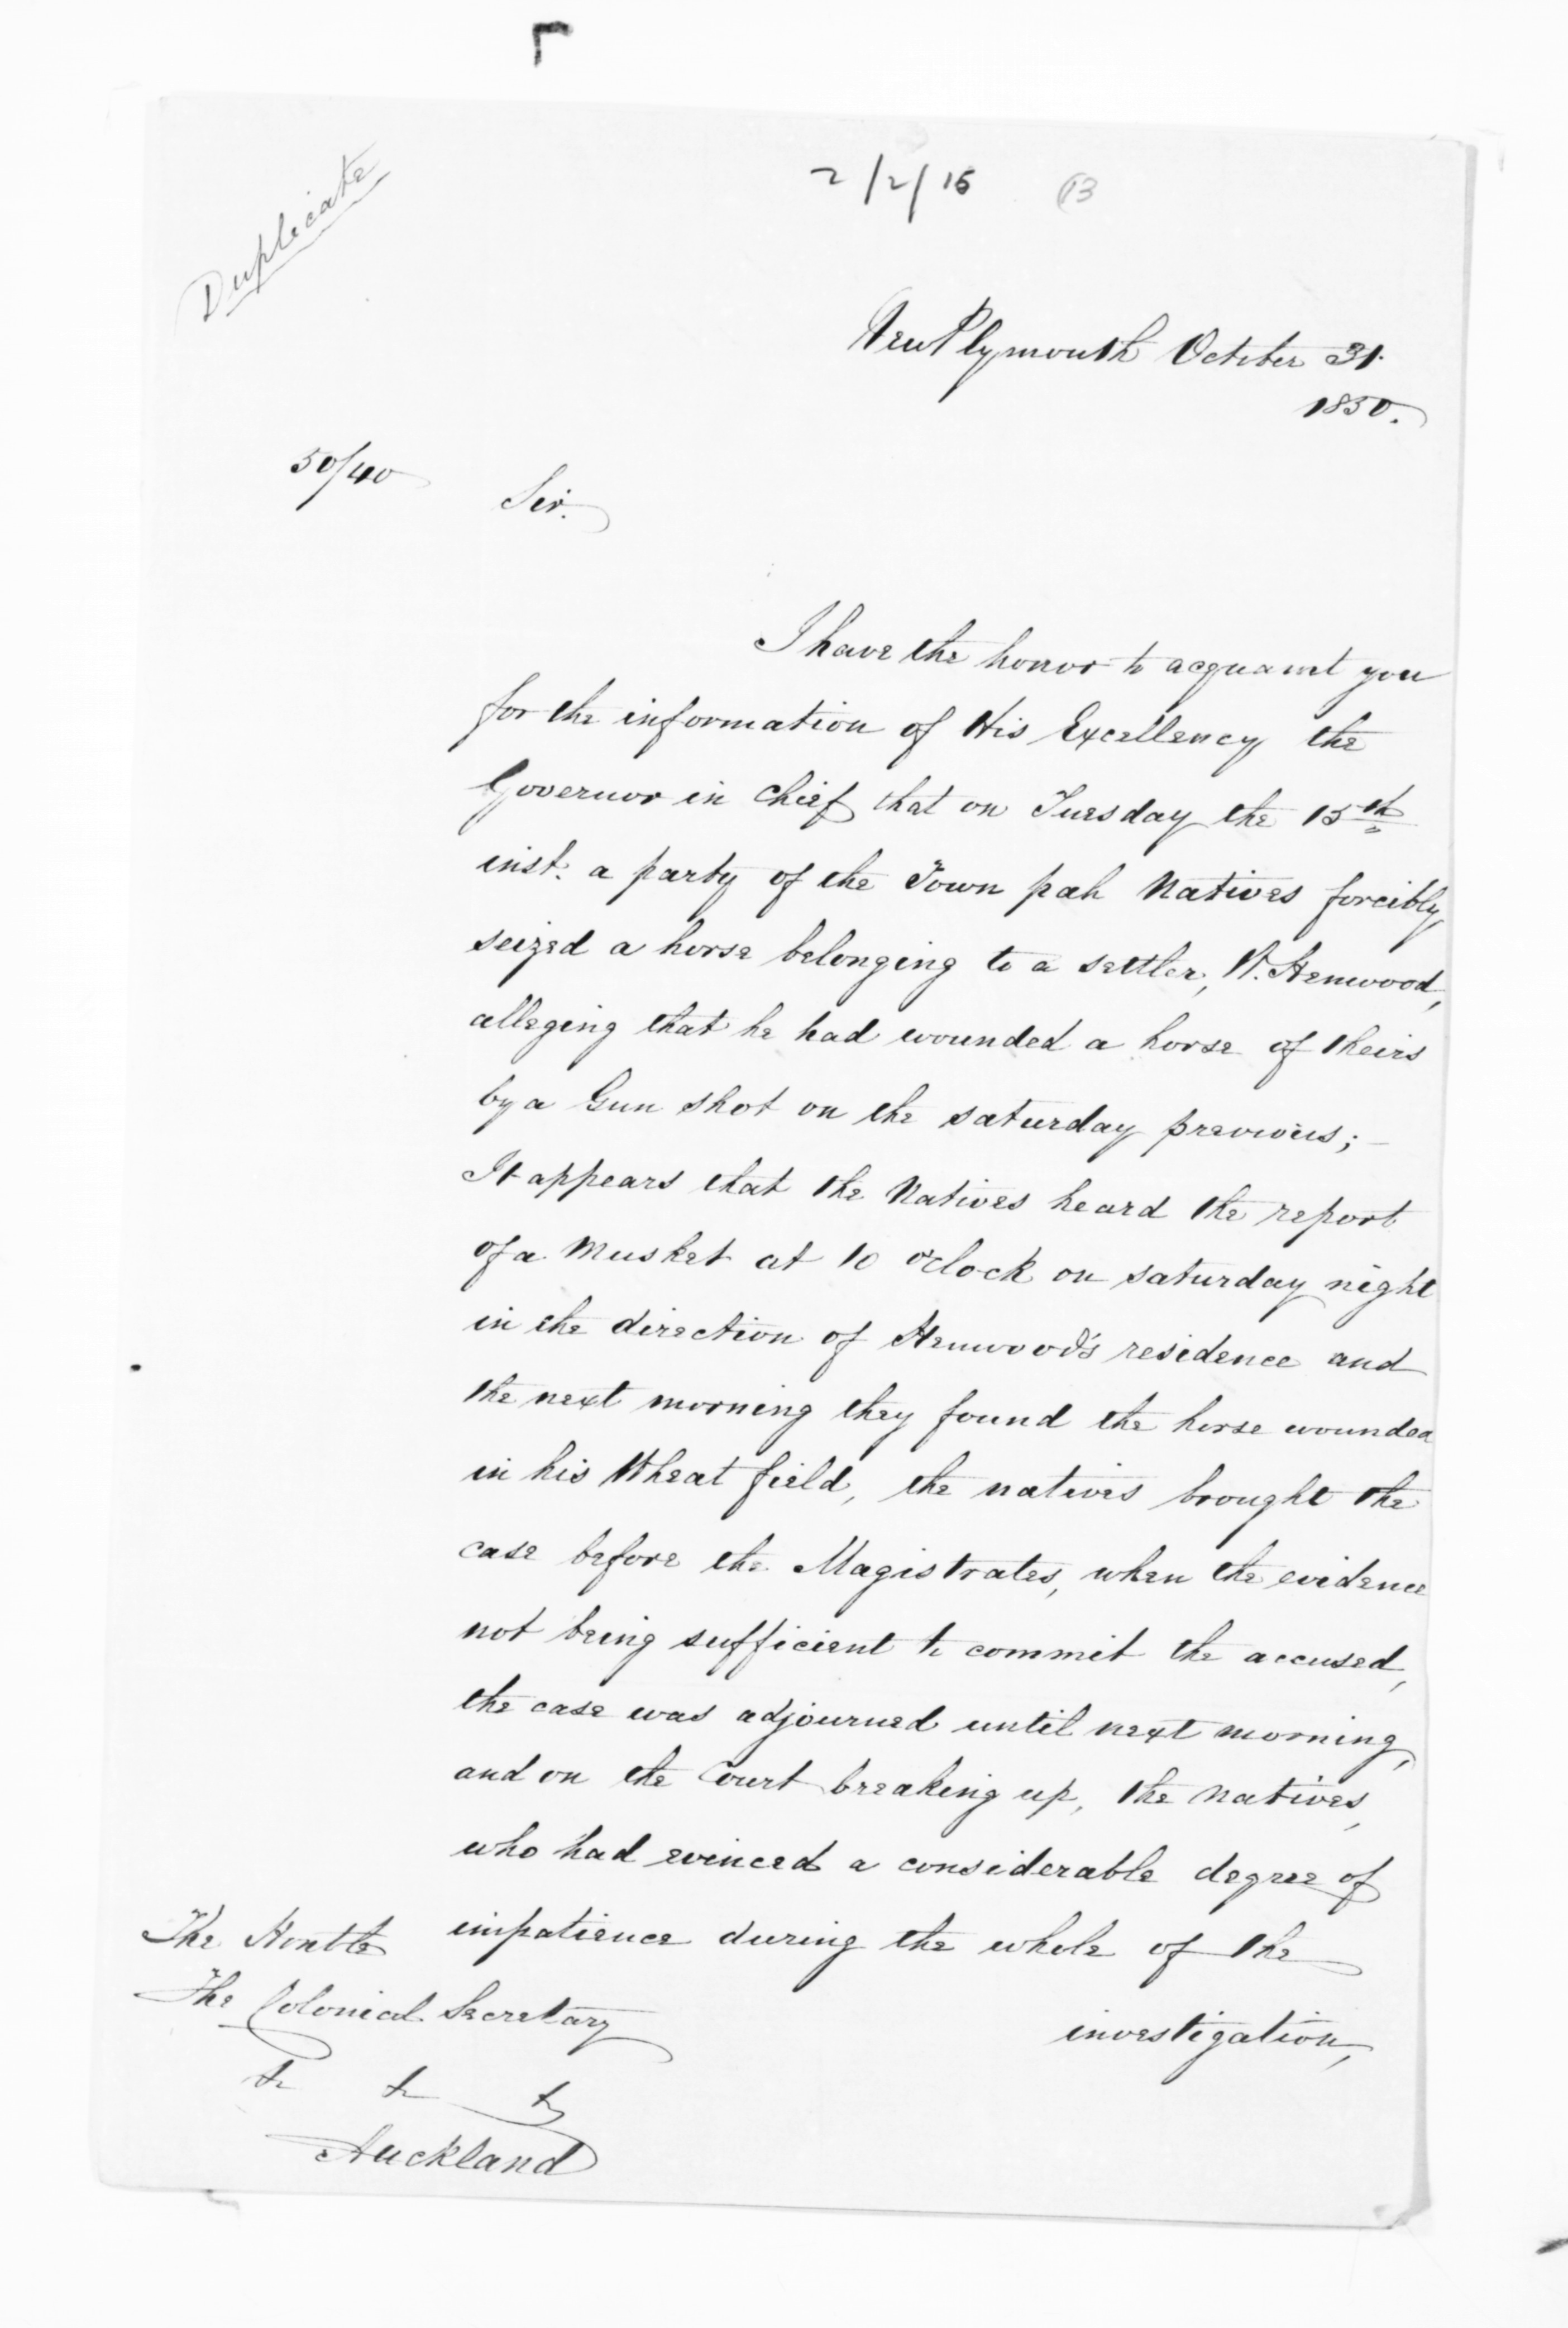 Duplicate
2/2/15 13
New Plymouth October 31.
1850.
50/40
Sir.
I have the honor to acquaint you
for the information of His Excellency the
Governor in Chief that on Tuesday the 15th
inst. a party of the Town pah Natives forcibly
seized a horse belonging to a settler, W. Henwood,
alleging that he had wounded a horse of theirs
by a Gun shot on the saturday previous; -
It appears that the Natives heard the report
of a Musket at 10 o'Clock on saturday night
in the direction of Henwood's residence and
the next morning they found the horse wounded
in his Wheat field, the natives brought the
case before the Magistrates, when the evidence
not being sufficient to commit the accused,
the case was adjourned until next morning,
and on the Court breaking up, the Natives,
who had evinced a considerable degree of
impatience during the whole of the
investigation,
The Honble
The Colonial Secretary
&c &c &c
Auckland